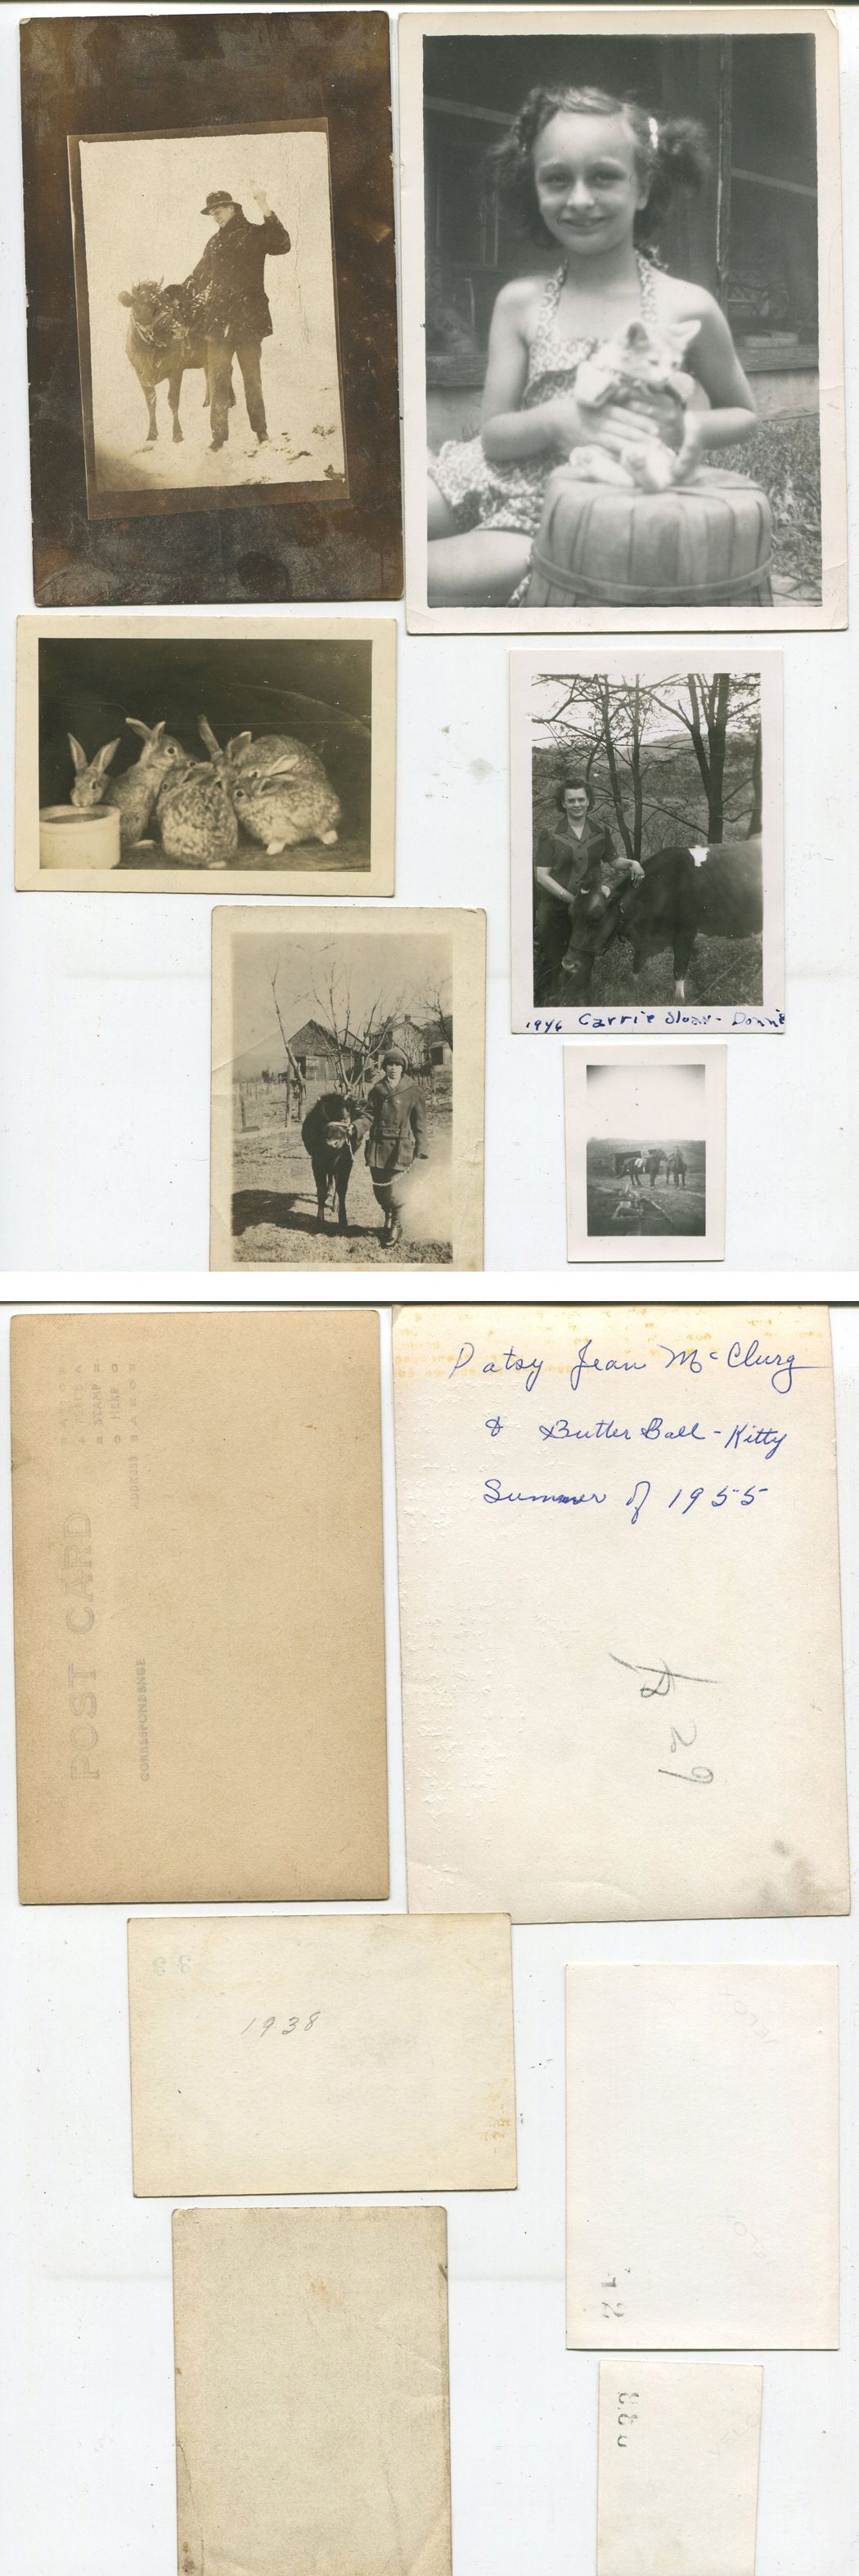 1946 Carrie Sloan - Donnie
Patsy Jean McClurg
& Butter Ball - Kitty
Summer of 1955
29
POST CARD
CORRESPONDENCE
ADDRESS
STAMP
HERE
33
1938